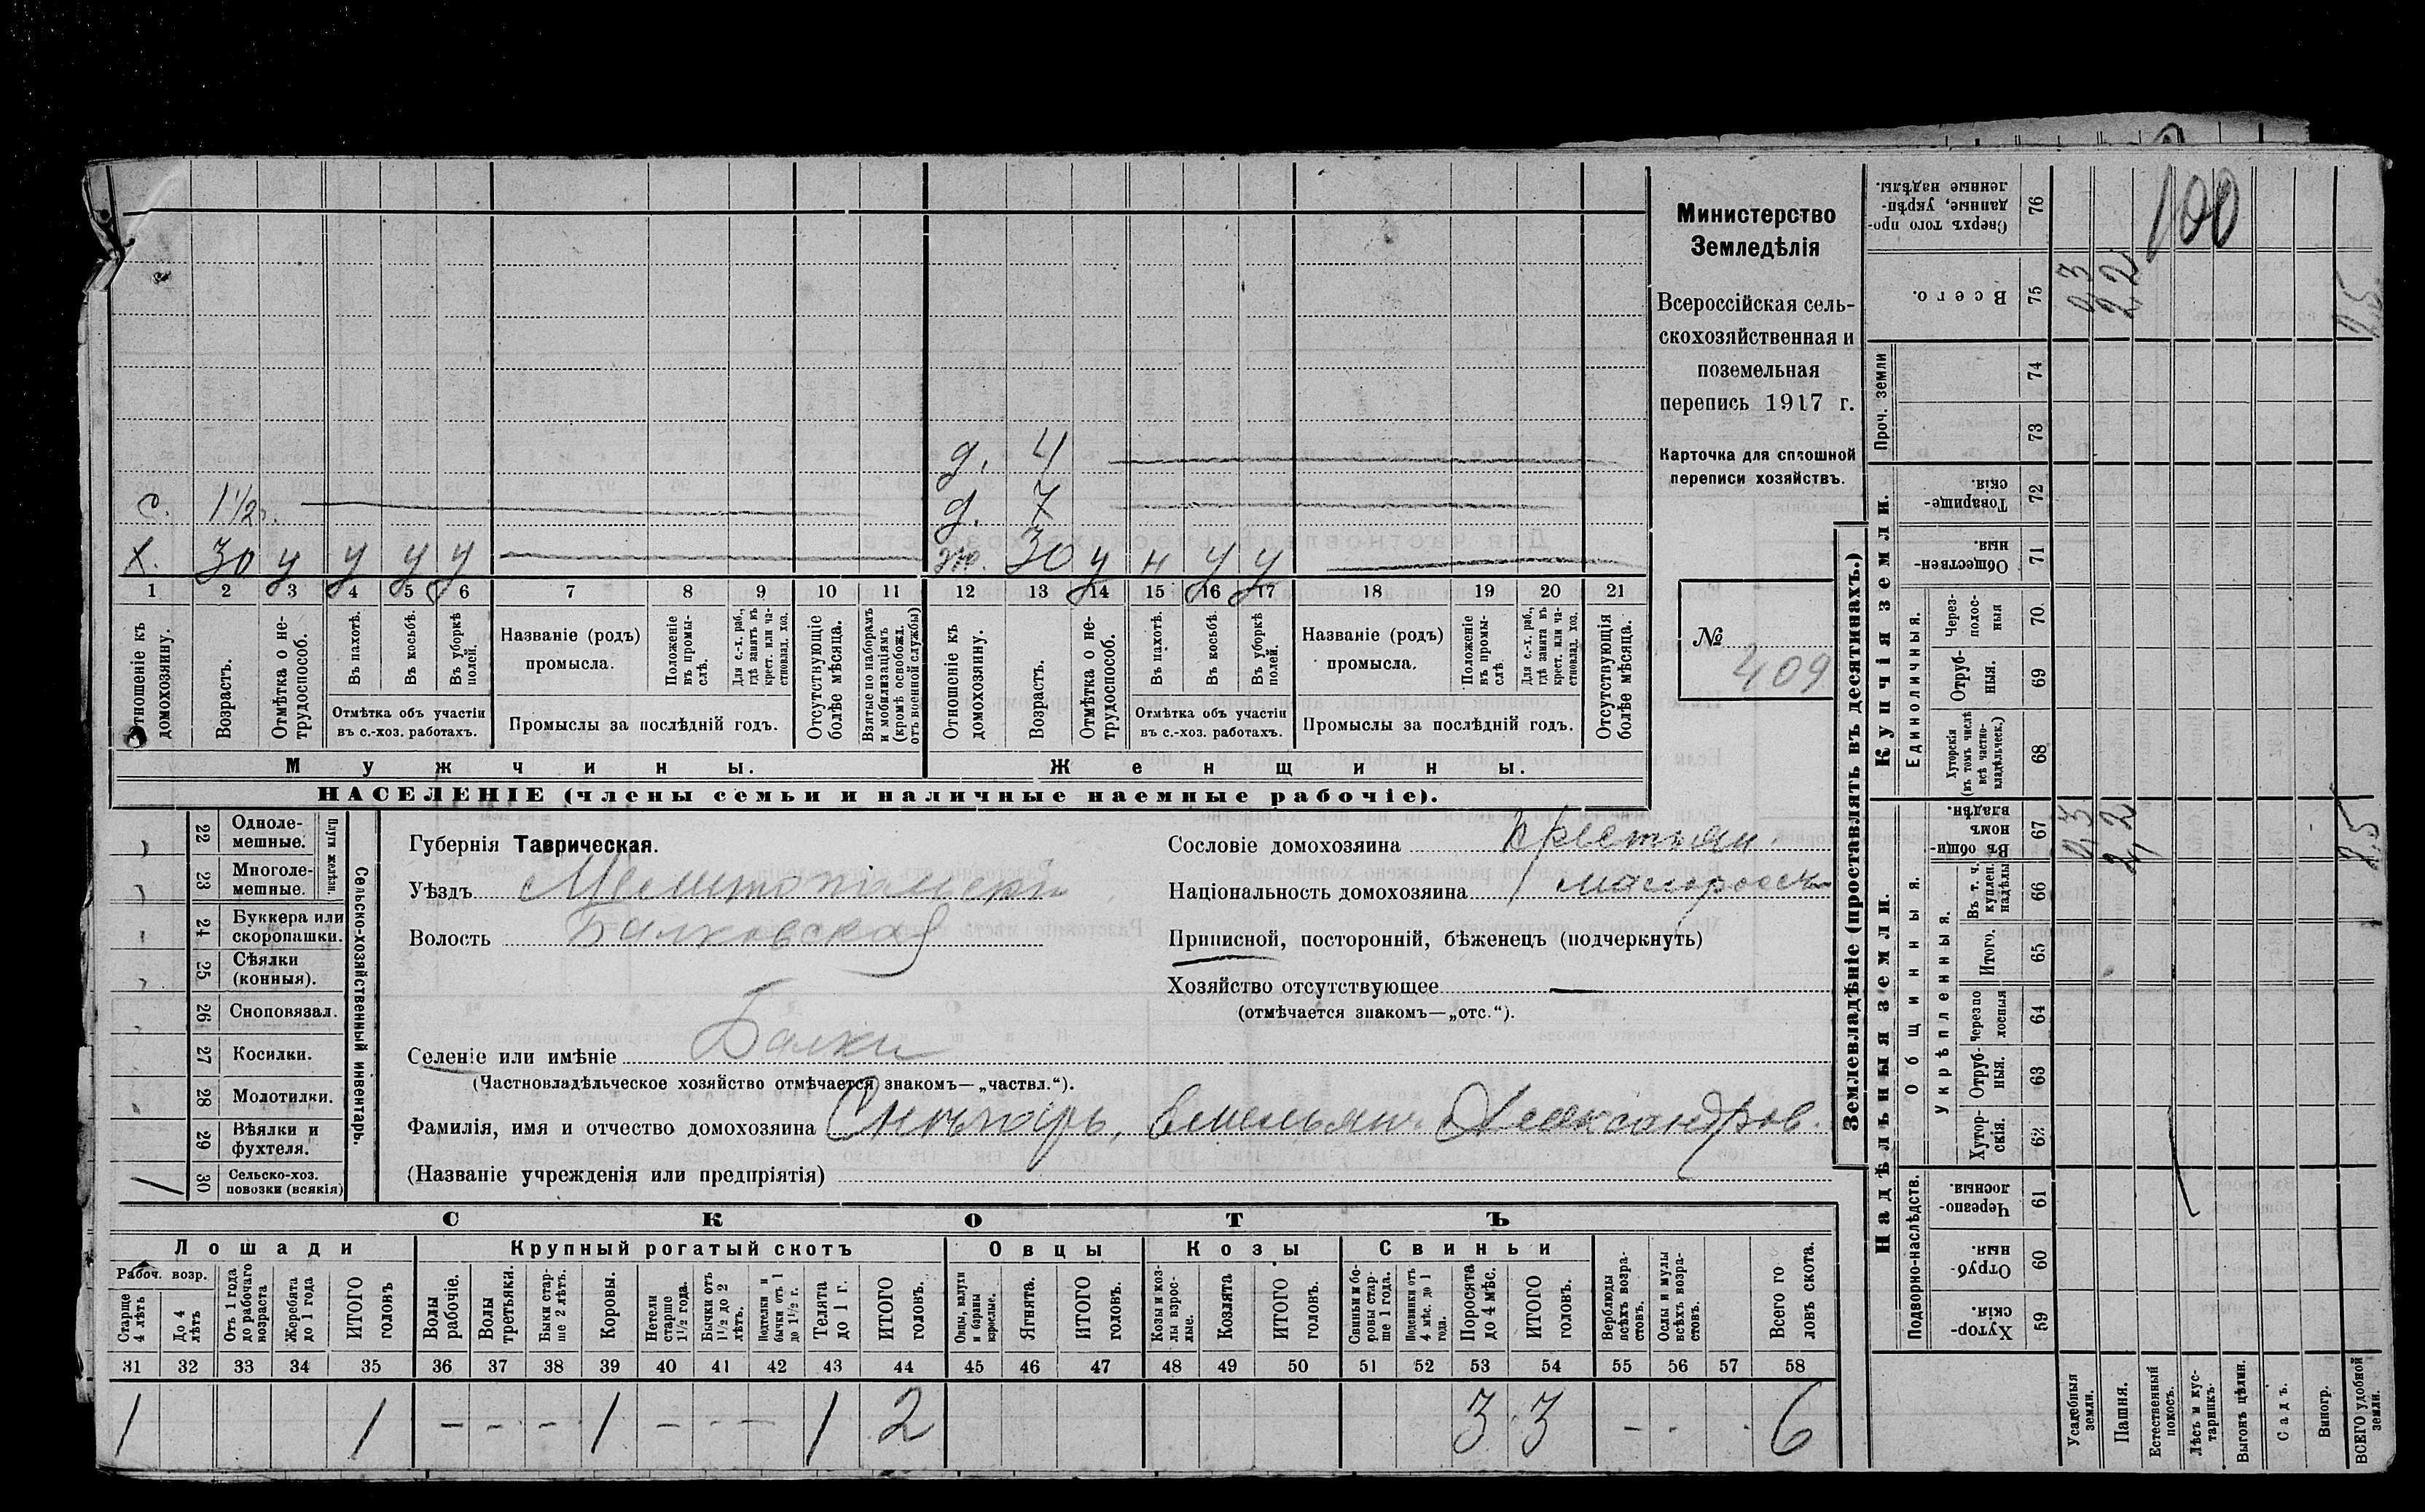 Министерство
Земледѣлія
Всероссійская сель-
скохозяйственная и
поземельная
перепись 1917 г.
Карточка для сплошной
переписи хозяйствъ.
№
409
д. 4
с. 1 1/2 г. д. 7
х. 30 у у у у ж. 30 у н у у
1 2 3 4 5 6 7 8 9 10 11 12 13 14 15 16 17 18 19 20 21
Отношеніе къ домохозяину.
Возрастъ.
Отмѣтка о не-трудоспособ.
Въ пахотѣ.
Въ косьбѣ.
Въ уборкѣ полей.
Отмѣтка объ участіи
въ с.-хоз. работахъ.
Названіе (родъ)
промысла.
Положеніе въ промы-слѣ.
Для с.-х. раб., гдѣ занятъ въ крест. или ча-стновлад. хоз.
Промыслы за послѣдній годъ.
Отсутствующіе болѣе мѣсяца.
Взятые по наборамъ и мобилизаціямъ (кромѣ освобожд. отъ военной службы)
Отношеніе къ домохозяину.
Возрастъ.
Отмѣтка о не-трудоспособ.
Въ пахотѣ.
Въ косьбѣ.
Въ уборкѣ полей.
Отмѣтка объ участіи
въ с.-хоз. работахъ.
Названіе (родъ)
промысла.
Положеніе въ промы-слѣ.
Для с.-х. раб., гдѣ занята въ крест. или ча-стновлад. хоз.
Промыслы за послѣдній годъ.
Отсутствующія болѣе мѣсяца.
Мужчины. Женщины.
НАСЕЛЕНІЕ (члены семьи и наличные наемные рабочіе).
22 Одноле-мешные.
23 Многоле-мешные.
Плуги желѣзн.
24 Буккера или скоропашки.
25 Сѣялки (конныя).
26 Сноповязал.
27 Косилки.
28 Молотилки.
29 Вѣялки и фухтеля.
30 Сельско-хоз. повозки (всякія) 1
Сельско-хозяйственный инвентарь.
Губернія Таврическая.
Уѣздъ Мелитопольскій
Волость Балковская
Селеніе или имѣніе Балки
(Частновладѣльческое хозяйство отмѣчается знакомъ—„частвл.“).
Фамилія, имя и отчество домохозяина Емельян Александров.
(Названіе учрежденія или предпріятія)
Сословіе домохозяина крестьян.
Національность домохозяина малоросс
Приписной, посторонній, бѣженецъ (подчеркнуть)
Хозяйство отсутствующее —
(отмѣчается знакомъ—„отс.“).
СКОТЪ
Лошади Крупный рогатый скотъ Овцы Козы Свиньи
Рабоч. возр.
Старше 4 лѣтъ
До 4 лѣтъ
Отъ 1 года до рабочаго возраста
Жеребята до 1 года
ИТОГО головъ
Волы рабочіе.
Волы третьяки.
Быки стар-ше 2 лѣтъ.
Коровы.
Нетели старше 1½ года.
Бычки отъ 1½ до 2 лѣтъ.
Подтелки и бычки отъ 1 до 1½ г.
Телята до 1 г.
ИТОГО головъ.
Овцы, валухи и бараны взрослые.
Ягнята.
ИТОГО головъ.
Козы и коз-лы взрос-лые.
Козлята
ИТОГО головъ.
Свиньи и бо-ровы стар-ше 1 года.
Подсвинки отъ 4 мѣс. до 1 года.
Поросята до 4 мѣс.
ИТОГО головъ.
Верблюды всѣхъ возра-стовъ.
Ослы и мулы всѣхъ возра-стовъ.
Всего го ловъ скота.
31 32 33 34 35 36 37 38 39 40 41 42 43 44 45 46 47 48 49 50 51 52 53 54 55 56 57 58
1 1 - - - 1 - - - 1 2 3 3 - - 6
Землевладѣніе (проставлять въ десятинахъ.)
Надѣльныя земли. Купчія земли. Проч. земли
Подворно-наслѣдств.
Общинныя.
Укрѣпленныя.
Единоличныя.
76 Сверхъ того про-данные, укрѣп-ленные надѣлы. 100
75 Всего. 0,3 2,2 2,5
74
73
72 Товарище-скія.
71 Обществен-ныя
70 Через-полос-ныя
69 Отруб-ныя.
68 Хуторскія (въ томъ числѣ всѣ частно-владѣльческ.)
67 Въ общи-номъ владѣн. 0,3 2,2 2,5
66 Въ т. ч. куплен. надѣлы
65 Итого.
64 Черезпо лосныя
63 Отруб-ныя.
62 Хутор-скія.
61 Черезпо-лосныя.
60 Отруб-ныя
59 Хутор-скія.
Усадебныя земли.
Пашня.
Естественный покосъ.
Лѣсъ и кус-тарникъ.
Выгонъ цѣлин.
Садъ.
Виногр.
ВСЕГО удобной земли.